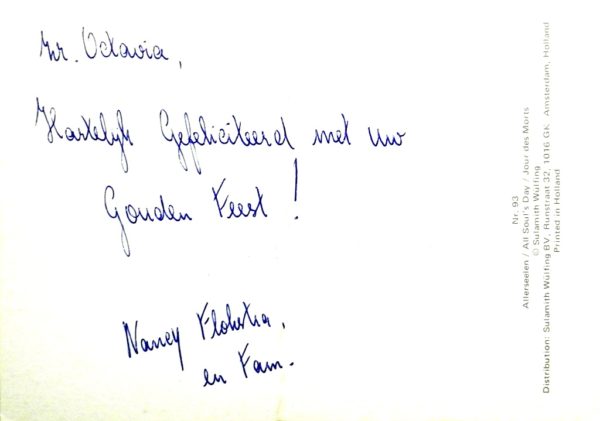 Zr. Octavia,
Hartelijk Gefeliciteerd met uw
Gouden Feest!
Nancy Flohstra,
en Fam.
Nr. 93
Allerseelen / All Soul's Day / Jour des Morts
© Sulamith Wülfing
Distribution: Sulamith Wülfing BV, Runstraat 32, 1016 GK Amsterdam, Holland
Printed in Holland